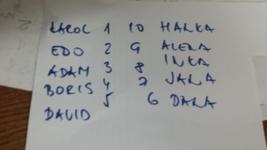 KAROL 1 10 HALKA
EDO 2 9 ALENA
ADAM 3 8 INKA
BORIS 4 7 JANA
DAVID 5 6 DANA